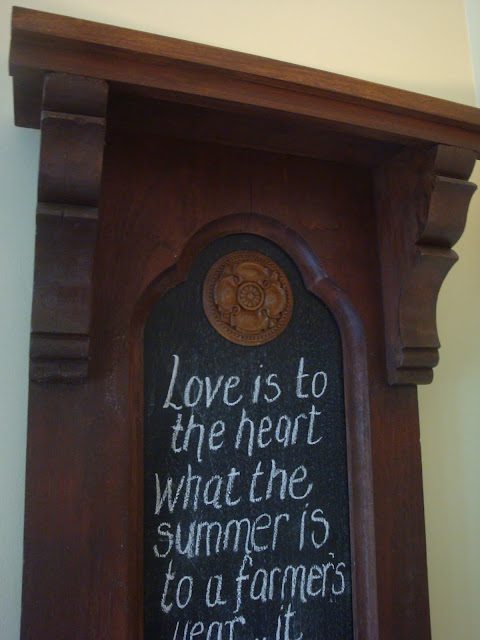 Love is to
the heart
what the
summer is
to a farmer's
year... it